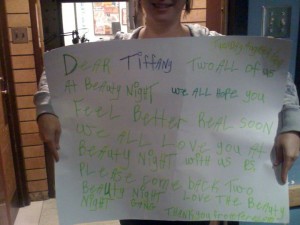 DEAR Tiffany Two All of us
At Beauty Night we All Hope you
Feel Better Real Soon
We ALL Love you At
Beauty Night with us
Please come back Two
Beauty Night Love The Beauty
Night
Thank you